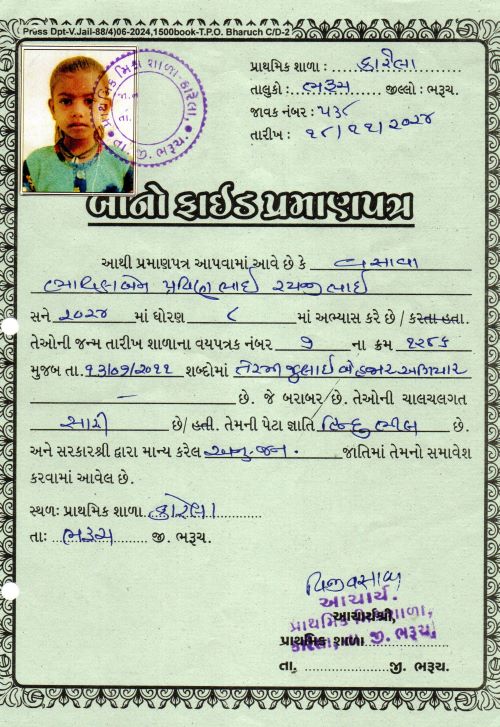 Press Dpt-V.Jail-88/4)06-2024,1500book-T.P.O. Bharuch C/D-2
પ્રાથમિક શાળા : કારેલા
તાલુકો : ભરૂચ જીલ્લો : ભરૂચ.
જાવક નંબર : ૫૩૮
તારીખ : ૧૮/૧૧/૨૦૨૪
પ્રાથમિક મિશ્ર શાળા-કારેલા.
તા. જી. ભરૂચ.
બોનો ફાઈડ પ્રમાણપત્ર
આથી પ્રમાણપત્ર આપવામાં આવે છે કે વસાવા
પ્રવિણભાઈ
સને ૨૦૨૪ માં ધોરણ ૮ માં અભ્યાસ કરે છે / કરતા હતા.
તેઓની જન્મ તારીખ શાળાના વયપત્રક નંબર ૭ ના ક્રમ
મુજબ તા. ૧૩/૦૭/૨૦૧૧ શબ્દોમાં તેરમી જુલાઈ બે હજાર અગિયાર
— છે. જે બરાબર છે. તેઓની ચાલચલગત
સારી છે/ હતી. તેમની પેટા જ્ઞાતિ હિન્દુ ભીલ છે.
અને સરકારશ્રી દ્વારા માન્ય કરેલ અનુ.જન. જાતિમાં તેમનો સમાવેશ
કરવામાં આવેલ છે.
સ્થળ: પ્રાથમિક શાળા કારેલા
તા: ભરૂચ જી. ભરૂચ.
આચાર્ય.
પ્રાથમિક મિશ્ર શાળા,
કારેલા, તા. જી. ભરૂચ.
આચાર્યશ્રી,
પ્રાથમિક શાળા
તા. જી. ભરૂચ.